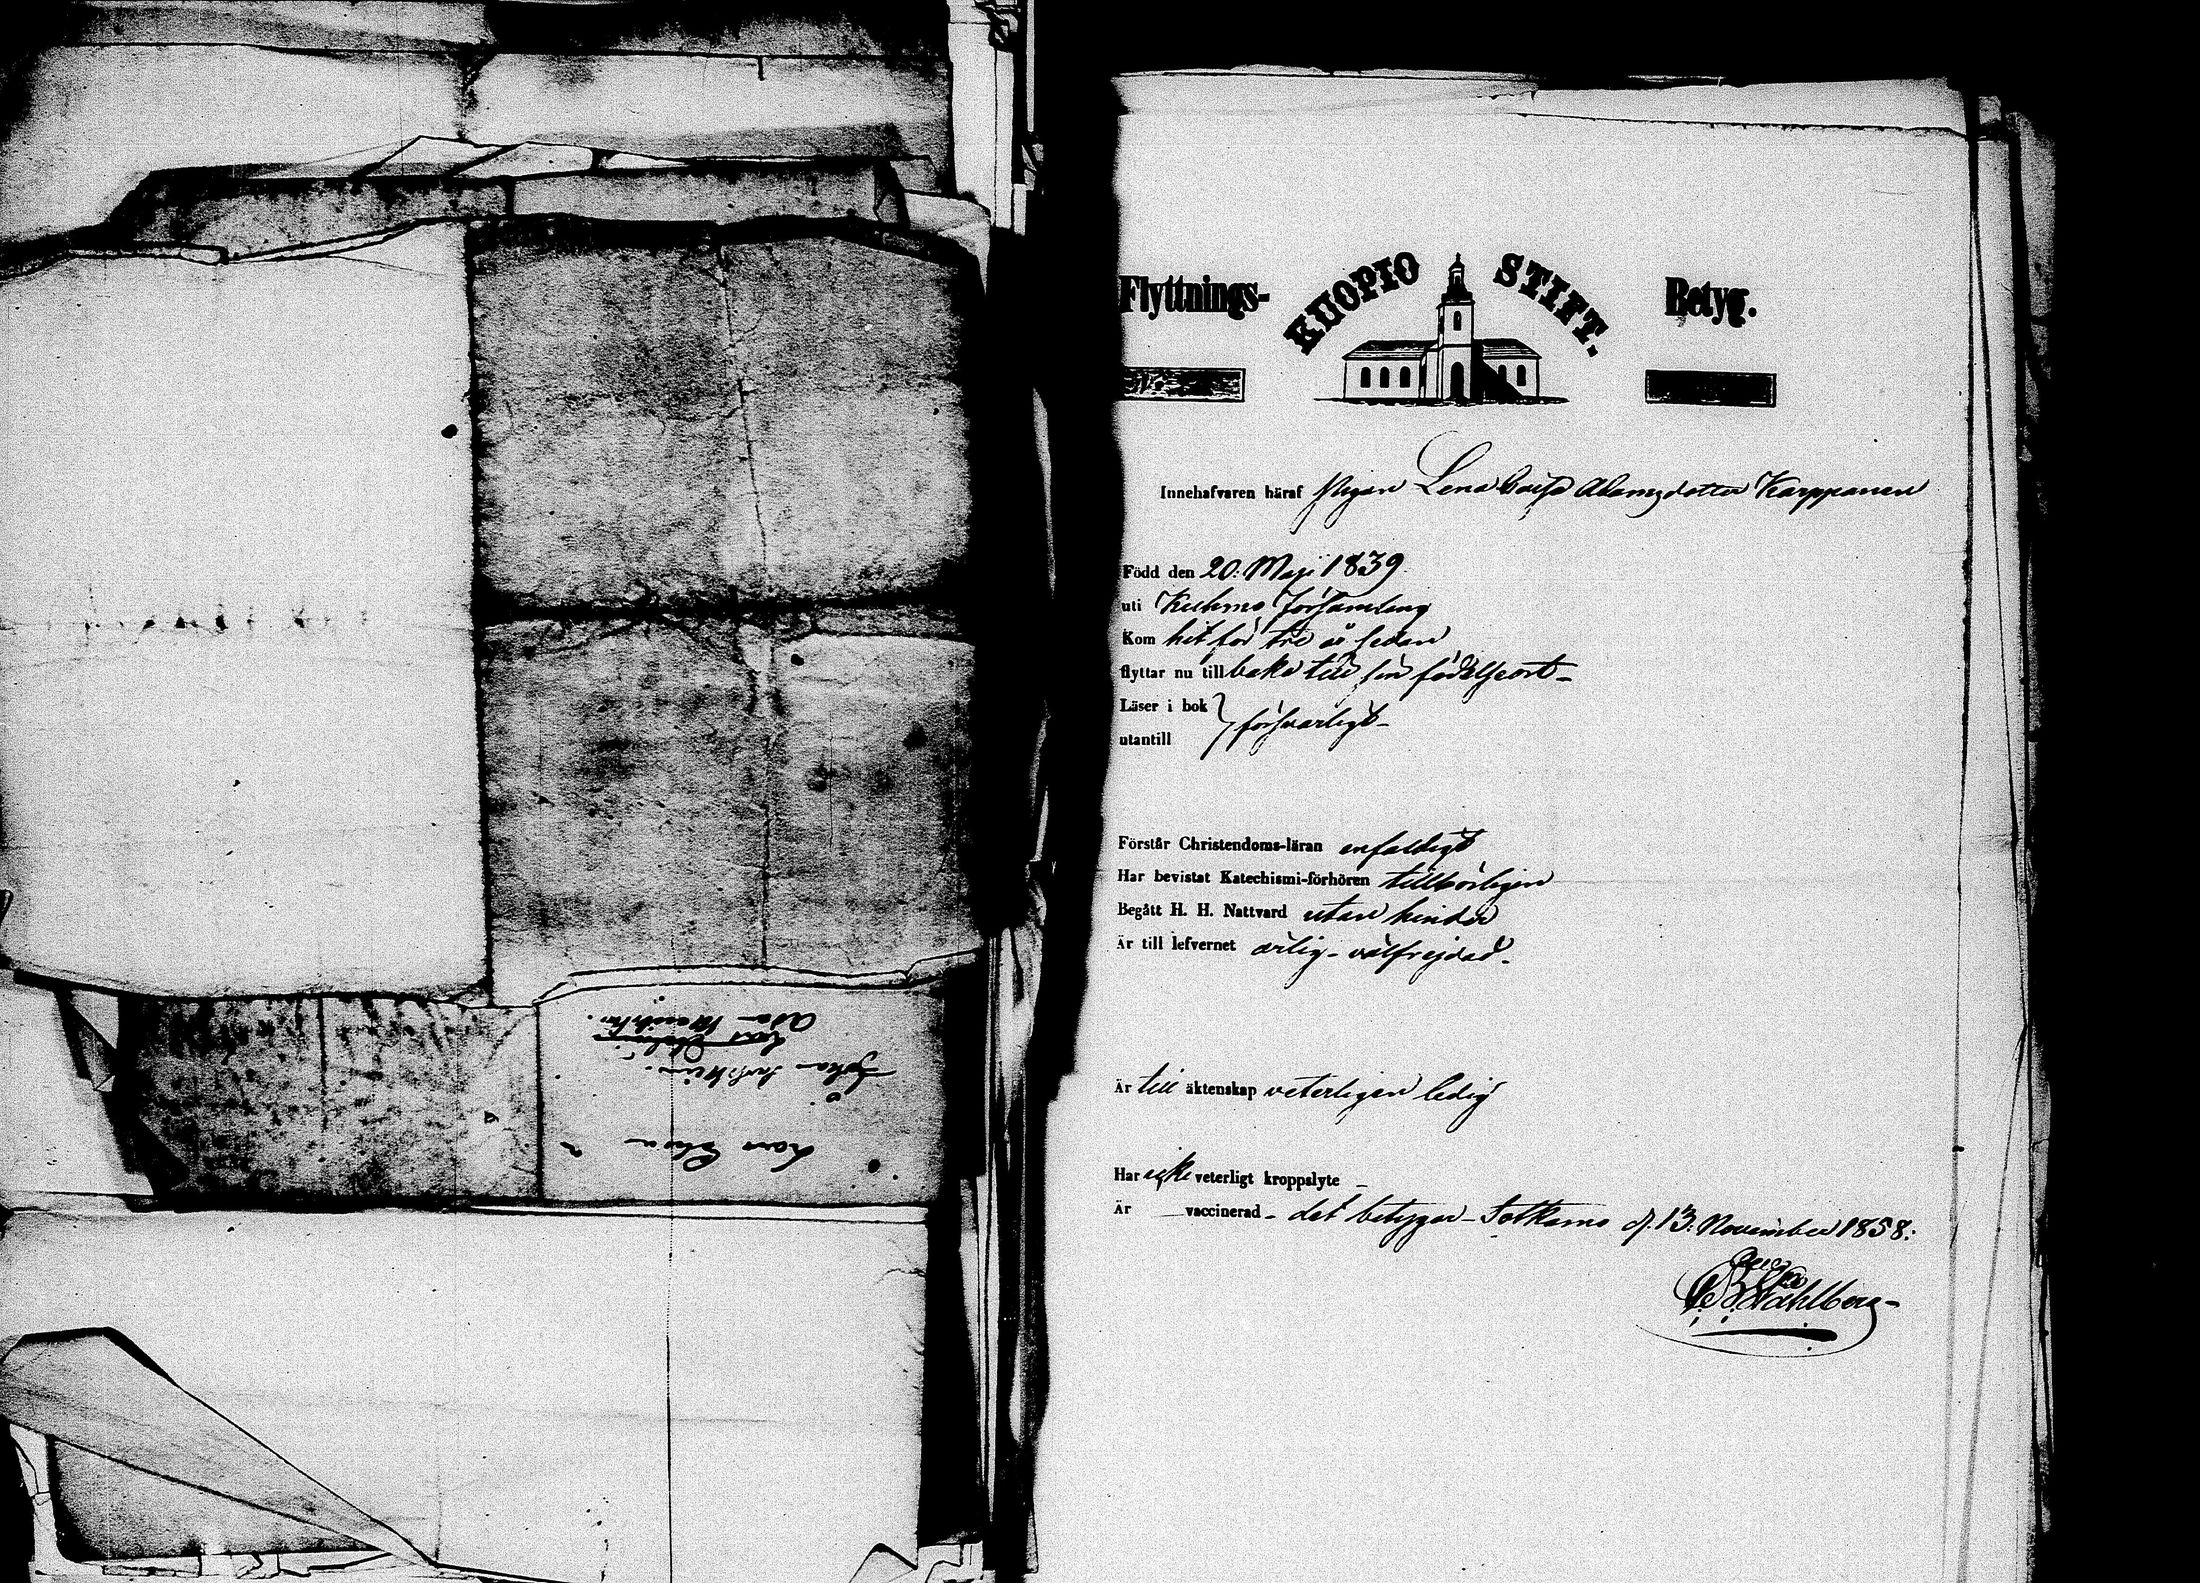 Flyttnings- KUOPIO STIFT. Betyg.
Innehafvaren häraf Pigan Lena Caisa Adamsdotter Karppanen
Född den 20: Maji 1839
uti Kuhmo församling
Kom hit för tre år sedan
flyttar nu tillbaka till sin födelseort –
Läser i bok } försvarligt –
utantill
Förstår Christendoms-läran enfaldigt
Har bevistat Katechismi-förhören tillbörligen
Begått H. H. Nattvard utan hinder
Är till lefvernet ärlig – välfrejdad.
Är till äktenskap veterligen ledig
Har icke veterligt kroppslyte –
Är — vaccinerad – det betygar – Sotkamo d. 13: November 1858:
Wahlberg –
Johan
Lars